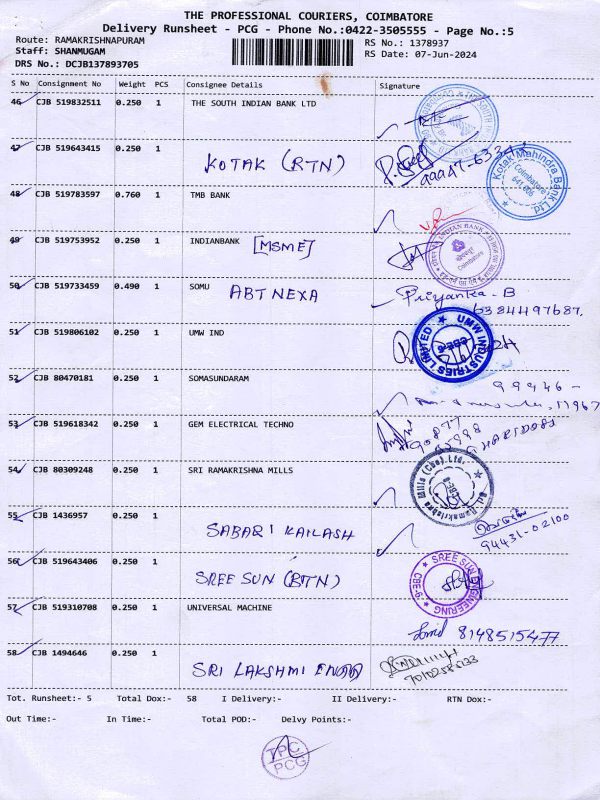 THE PROFESSIONAL COURIERS, COIMBATORE
Delivery Runsheet - PCG - Phone No.:0422-3505555 - Page No.:5
Route: RAMAKRISHNAPURAM
RS No.: 1378937
Staff: SHANMUGAM
RS Date: 07-Jun-2024
DRS No.: DCJB137893705
S No Consignment No Weight PCS Consignee Details Signature
46 CJB 519832511 0.250 1 THE SOUTH INDIAN BANK LTD
47 CJB 519643415 0.250 1
KOTAK (RTN)
Kotak Mahindra Bank Ltd
Coimbatore
641 006
48 CJB 519783597 0.760 1 TMB BANK
49 CJB 519753952 0.250 1 INDIANBANK [MSME]
INDIAN BANK
Coimbatore
50 CJB 519733459 0.490 1 SOMU ABT NEXA
Priyanka - B
6384497687.
51 CJB 519806102 0.250 1 UMW IND
UMW INDUSTRIES LIMITED
CBE-6
52 CJB 80470181 0.250 1 SOMASUNDARAM
99946 -
11967
53 CJB 519618342 0.250 1 GEM ELECTRICAL TECHNO
54 CJB 80309248 0.250 1 SRI RAMAKRISHNA MILLS
Sri Ramakrishna Mills (Cbe) Ltd.
55 CJB 1436957 0.250 1
SABARI KAILASH
94431-02100
56 CJB 519643406 0.250 1
SREE SUN (RTN)
SREE SUN ENGINEERING
CBE-6
57 CJB 519310708 0.250 1 UNIVERSAL MACHINE
8148515477
58 CJB 1494646 0.250 1
SRI LAKSHMI
Tot. Runsheet:- 5 Total Dox:- 58 I Delivery:- II Delivery:- RTN Dox:-
Out Time:- In Time:- Total POD:- Delvy Points:-
TPC
PCG